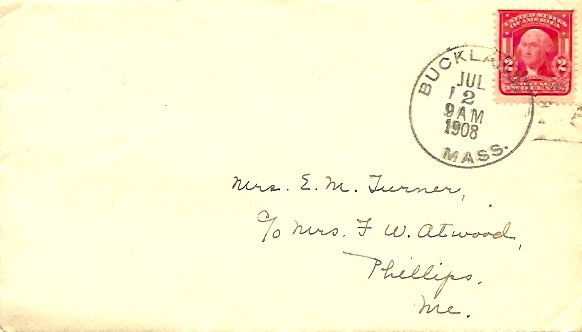 UNITED STATES
OF AMERICA
2 2
TWO CENTS
BUCKLAND
JUL
12
9 AM
1908
MASS.
Mrs. E. M. Turner,
c/o Mrs. F. W. Atwood,
Phillips.
Me.